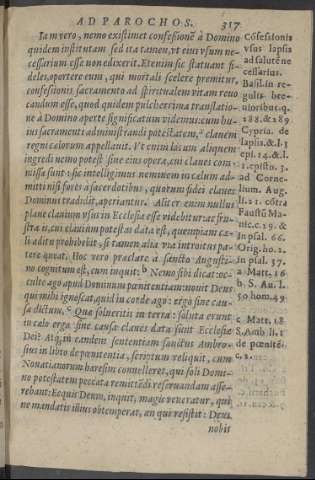 AD PAROCHOS. 317
Iam vero, nemo existimet confessionē à Domino
quidem institutam sed ita tamen, vt eius vsum ne-
cessarium esse non edixerit. Etenim sic statuant fi-
deles, oportere eum, qui mortali scelere premitur,
confessionis sacramento ad spiritualem vitam reuo
candum esse, quod quidem pulcherrima translatio-
ne à Domino aperte significatum videmus: cum hu-
ius sacramenti administrandi potestatem, a clauem
regni cælorum appellauit. Vt enim locum aliquem
ingredi nemo potest sine eius opera, cui claues com-
missæ sunt: sic intelligimus neminem in cælum ad-
mitti nisi fores à sacerdotibus, quorum fidei claues
Dominus tradidit, aperiantur. Aliter enim nullus
plane clauium vsus in Ecclesia esse videbitur: ac fru-
stra is, cui clauium potestas data est, quempiam cæ-
li aditu prohibebit, si tamen alia via introitus pa-
tere queat. Hoc vero præclare à sancto Augusti-
no cognitum est, cum inquit: b Nemo sibi dicat: oc-
culte ago apud Dominum pœnitentiam: nouit Deus
qui mihi ignoscat, quid in corde ago: ergo sine cau-
sa dictum: c Quæ solueritis in terra: soluta erunt
in cælo ergo sine causa claues datæ sunt Ecclesiæ
Dei: Atq, in eandem sententiam sanctus Ambro-
sius in libro de pœnitentia, scriptum reliquit, cum
Nouatianorum hæresim conuelleret, qui soli Domi-
no potestatem peccata remittēdi reseruandam asse-
rebant: Ecquis Deum, inquit, magis veneratur, qui
ne mandatis illius obtemperat, an qui resistit: Deus
nobis
Cōfessionis
vsus lapsis
ad salutē ne
cessarius.
Basil. in re
gulis bre-
uioribus. q.
188. & 289
Cypria. de
lapsis. & l. 3
epi. 14. & l.
1. epist. 3.
ad Corne-
lium. Aug.
li. 21. cōtra
Faustū Ma-
nic. c. 19. &
In psal. 66.
Orig. ho. 1.
In psal. 37.
a Matt. 16
b S. Au. l.
50 hom. 49
c Matt. 18
S. Amb. li. 1
de pœnitē.
c. 2.